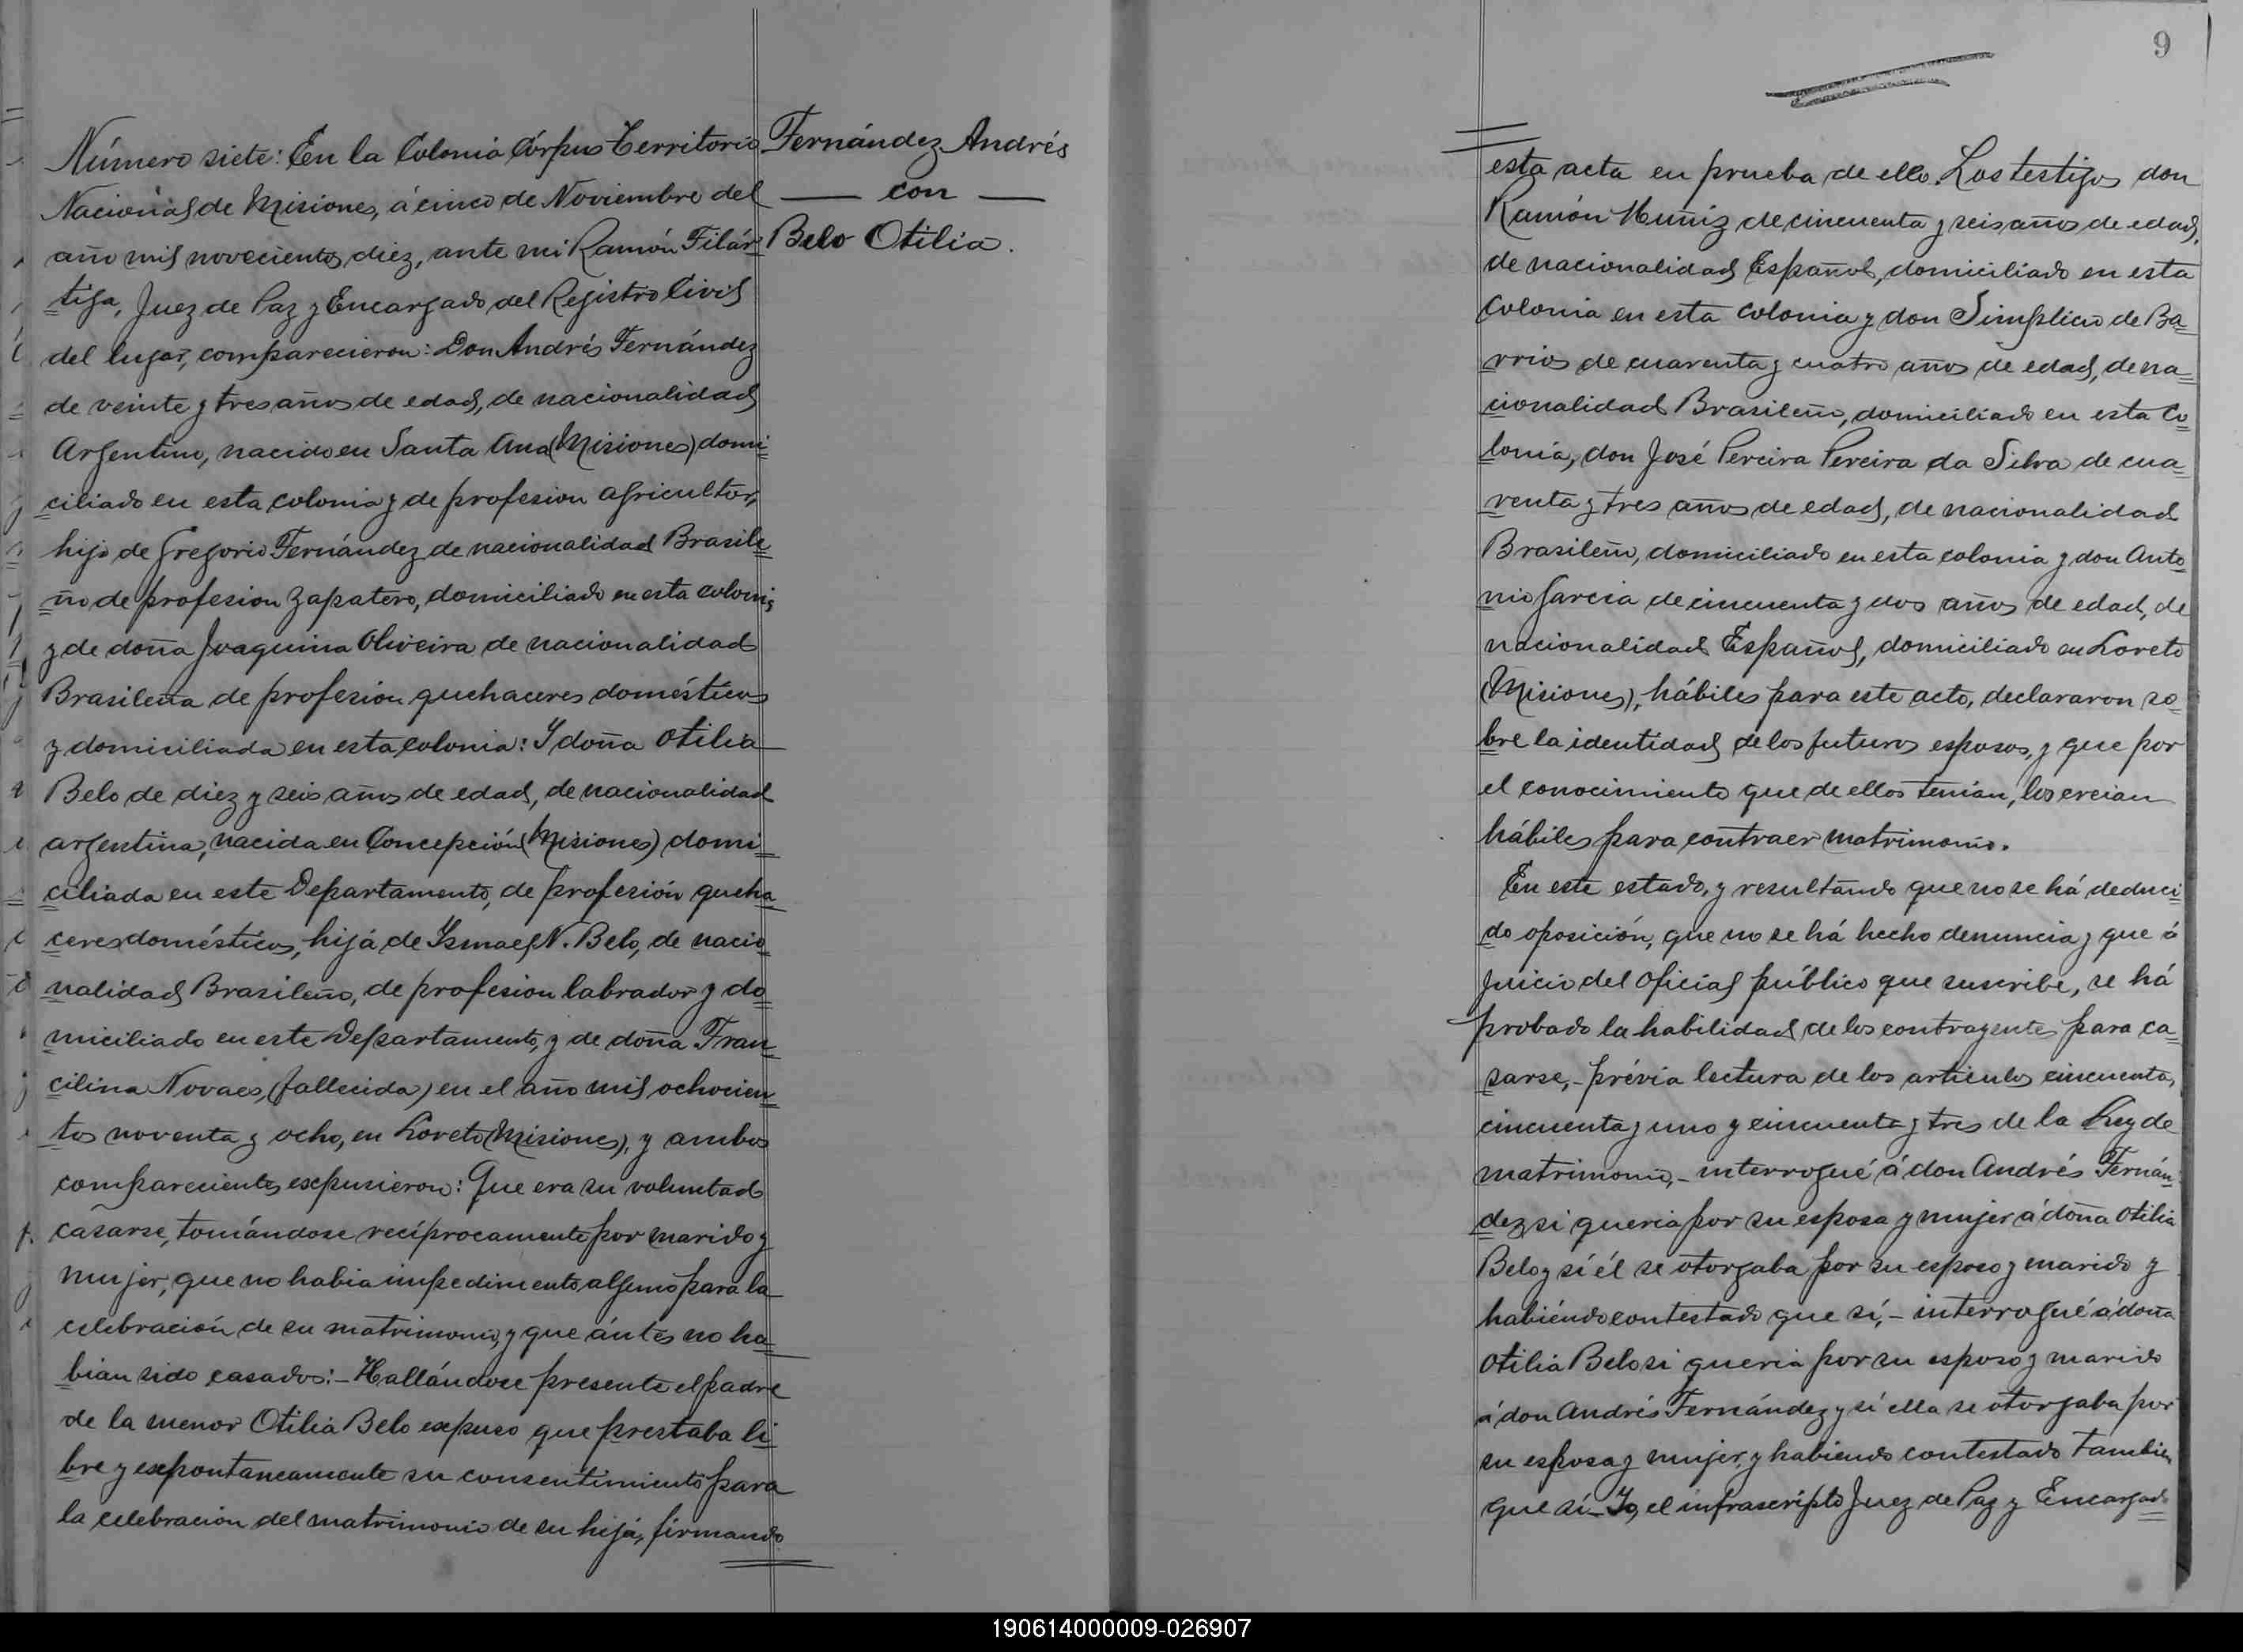 Número siete: En la Colonia Córpus Territorio
Nacional de Misiones, á cinco de Noviembre del
año mil novecientos diez, ante mi Ramón Filár-
tiga, Juez de Paz y Encargado del Registro Civil
del lugar, comparecieron: Don Andrés Fernández
de veinte y tres años de edad, de nacionalidad
Argentino, nacido en Santa Ana (Misiones) domi=
ciliado en esta colonia y de profesion agricultor,
hijo de Gregorio Fernández de nacionalidad Brasile=
ño de profesion zapatero, domiciliado en esta colonia,
y de doña Joaquina Oliveira de nacionalidad
Brasileña de profesion quehaceres domésticos
y domiciliada en esta colonia: Y doña Otilia
Belo de diez y seis años de edad, de nacionalidad
argentina, nacida en Concepción (Misiones) domi=
ciliada en este Departamento, de profesión queha=
ceres domésticos, hija de Ismael N. Belo, de nacio=
nalidad Brasileño, de profesion labrador y do=
miciliado en este Departamento, y de doña Fran=
cilina Novaes, (fallecida) en el año mil ochocien=
tos noventa y ocho, en Loreto (Misiones), y ambos
comparecientes expusieron: Que era su voluntad
casarse, tomándose recíprocamente por marido y
mujer, que no habia impedimento alguno para la
celebración de su matrimonio, y que ántes no ha=
bian sido casados:- Hallándose presente el padre
de la menor Otilia Belo expuso que prestaba li=
bre y expontaneamente su consentimiento para
la celebración del matrimonio de su hija, firmando
Fernández Andrés
— con —
Belo Otilia.
9
esta acta en prueba de ello. Los testigos don
Ramón Muñiz de cincuenta y seis años de edad,
de nacionalidad Español, domiciliado en esta
colonia en esta colonia y don Simplicio de Ba=
rrios de cuarenta y cuatro años de edad, de na=
cionalidad Brasileño, domiciliado en esta Co=
lonia, don José Pereira Pereira da Silva de cua=
renta y tres años de edad, de nacionalidad
Brasileño, domiciliado en esta colonia y don Anto=
nio Garcia de cincuenta y dos años de edad, de
nacionalidad Español, domiciliado en Loreto
(Misiones), hábiles para este acto, declararon so=
bre la identidad de los futuros esposos, y que por
el conocimiento que de ellos tenian, los creian
hábiles para contraer matrimonio.
En este estado, y resultando que no se há deduci=
do oposición, que no se há hecho denuncia y que á
juicio del oficial público que suscribe, se há
probado la habilidad de los contrayentes para ca=
sarse,- prévia lectura de los artículos cincuenta,
cincuenta y uno y cincuenta y tres de la Ley de
matrimonio,- interrogué á don Andrés Fernán=
dez si queria por su esposa y mujer á doña Otilia
Belo y si él se otorgaba por su esposo y marido y
habiéndo contestado que sí,- interrogué á doña
Otilia Belo si queria por su esposo y marido
á don Andrés Fernández y si ella se otorgaba por
su esposa y mujer, y habiendo contestado tambien
que sí- Yo, el infrascripto Juez de Paz y Encargado
190614000009-026907